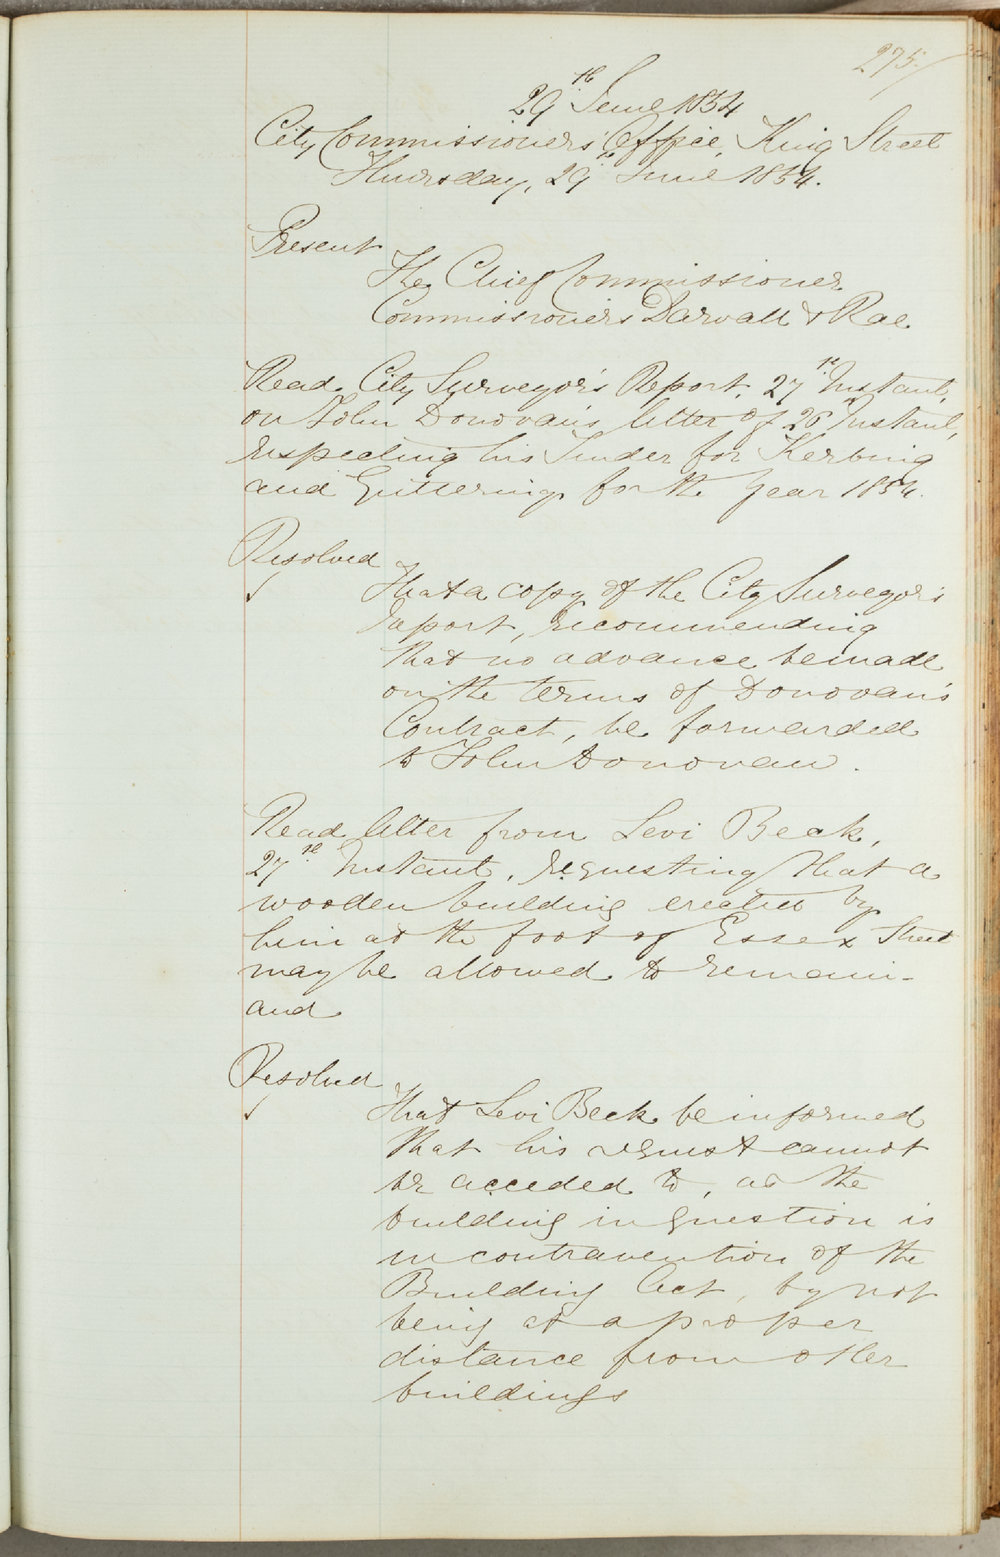 275
29th June 1854
City Commissioners' Office, King Street
Thursday, 29th June 1854.
Present
The Chief Commissioner
Commissioners Darvall & Rae
Read City Surveyor's Report, 27th Instant,
on John Donovan's letter of 26 Instant,
respecting his Tender for Kerbing
and Guttering for the Year 1854.
Resolved
That a copy of the City Surveyor's
Report, recommending
that no advance be made
on the terms of Donovan's
Contract, be forwarded
to John Donovan.
Read letter from Levi Beck,
27th Instant, requesting that a
wooden building erected by
him at the foot of Essex Street
may be allowed to remain -
and
Resolved
That Levi Beck be informed
that his request cannot
be acceded to, as the
building in question is
in contravention of the
Building Act, by not
being at a proper
distance from other
buildings